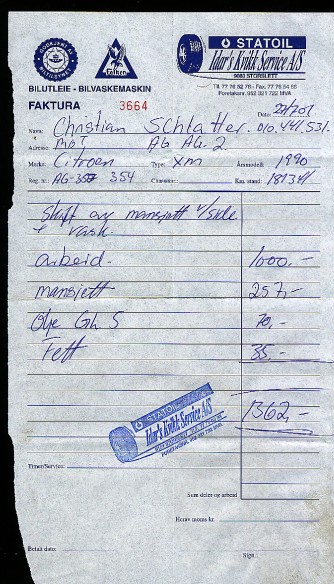 GODKJENT AV
BILTILSYNET
Falken
STATOIL
Idar's Kvikk Service A/S
9080 STORSLETT
Tlf. 77 76 52 76 - Fax 77 76 54 66
Foretaksnr. 952 321 722 MVA
BILUTLEIE - BILVASKEMASKIN
FAKTURA 3664
Dato:
Navn: Christian Schlatter
Adresse:
Merke: Citroen Type: XM Årsmodell: 1990
Reg. nr.: AG-357 354 Chassisnr.: Km. stand: 181341
Skift av mansjett v/side
vask.
arbeid. 1000.-
mansjett 257,-
Olje 70,-
Fett 35.-
1362,-
STATOIL
Idar's Kvikk Service A/S
Timer/Service:
Sum deler og arbeid
Herav moms kr.
Betalt dato: Sign.